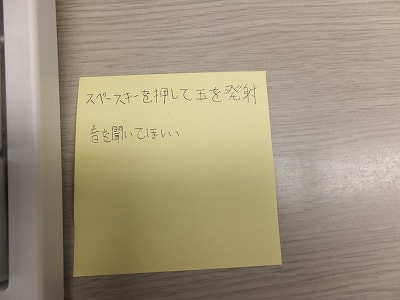 スペースキーを押して玉を発射
音を聞いてほしい